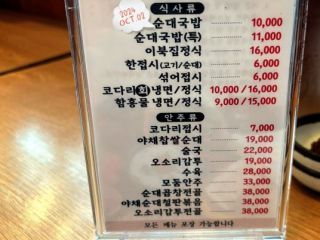 2024
OCT 02
식사류
순대국밥 10,000
순대국밥(특) 11,000
이북집정식 16,000
한접시(고기/순대) 6,000
섞어접시 6,000
코다리회냉면/정식 10,000/16,000
함흥물냉면/정식 9,000/15,000
안주류
코다리접시 7,000
야채찹쌀순대 19,000
술국 22,000
오소리감투 19,000
수육 28,000
모둠안주 33,000
순대곱창전골 38,000
야채순대철판볶음 38,000
오소리감투전골 38,000
모든 메뉴 포장 가능합니다